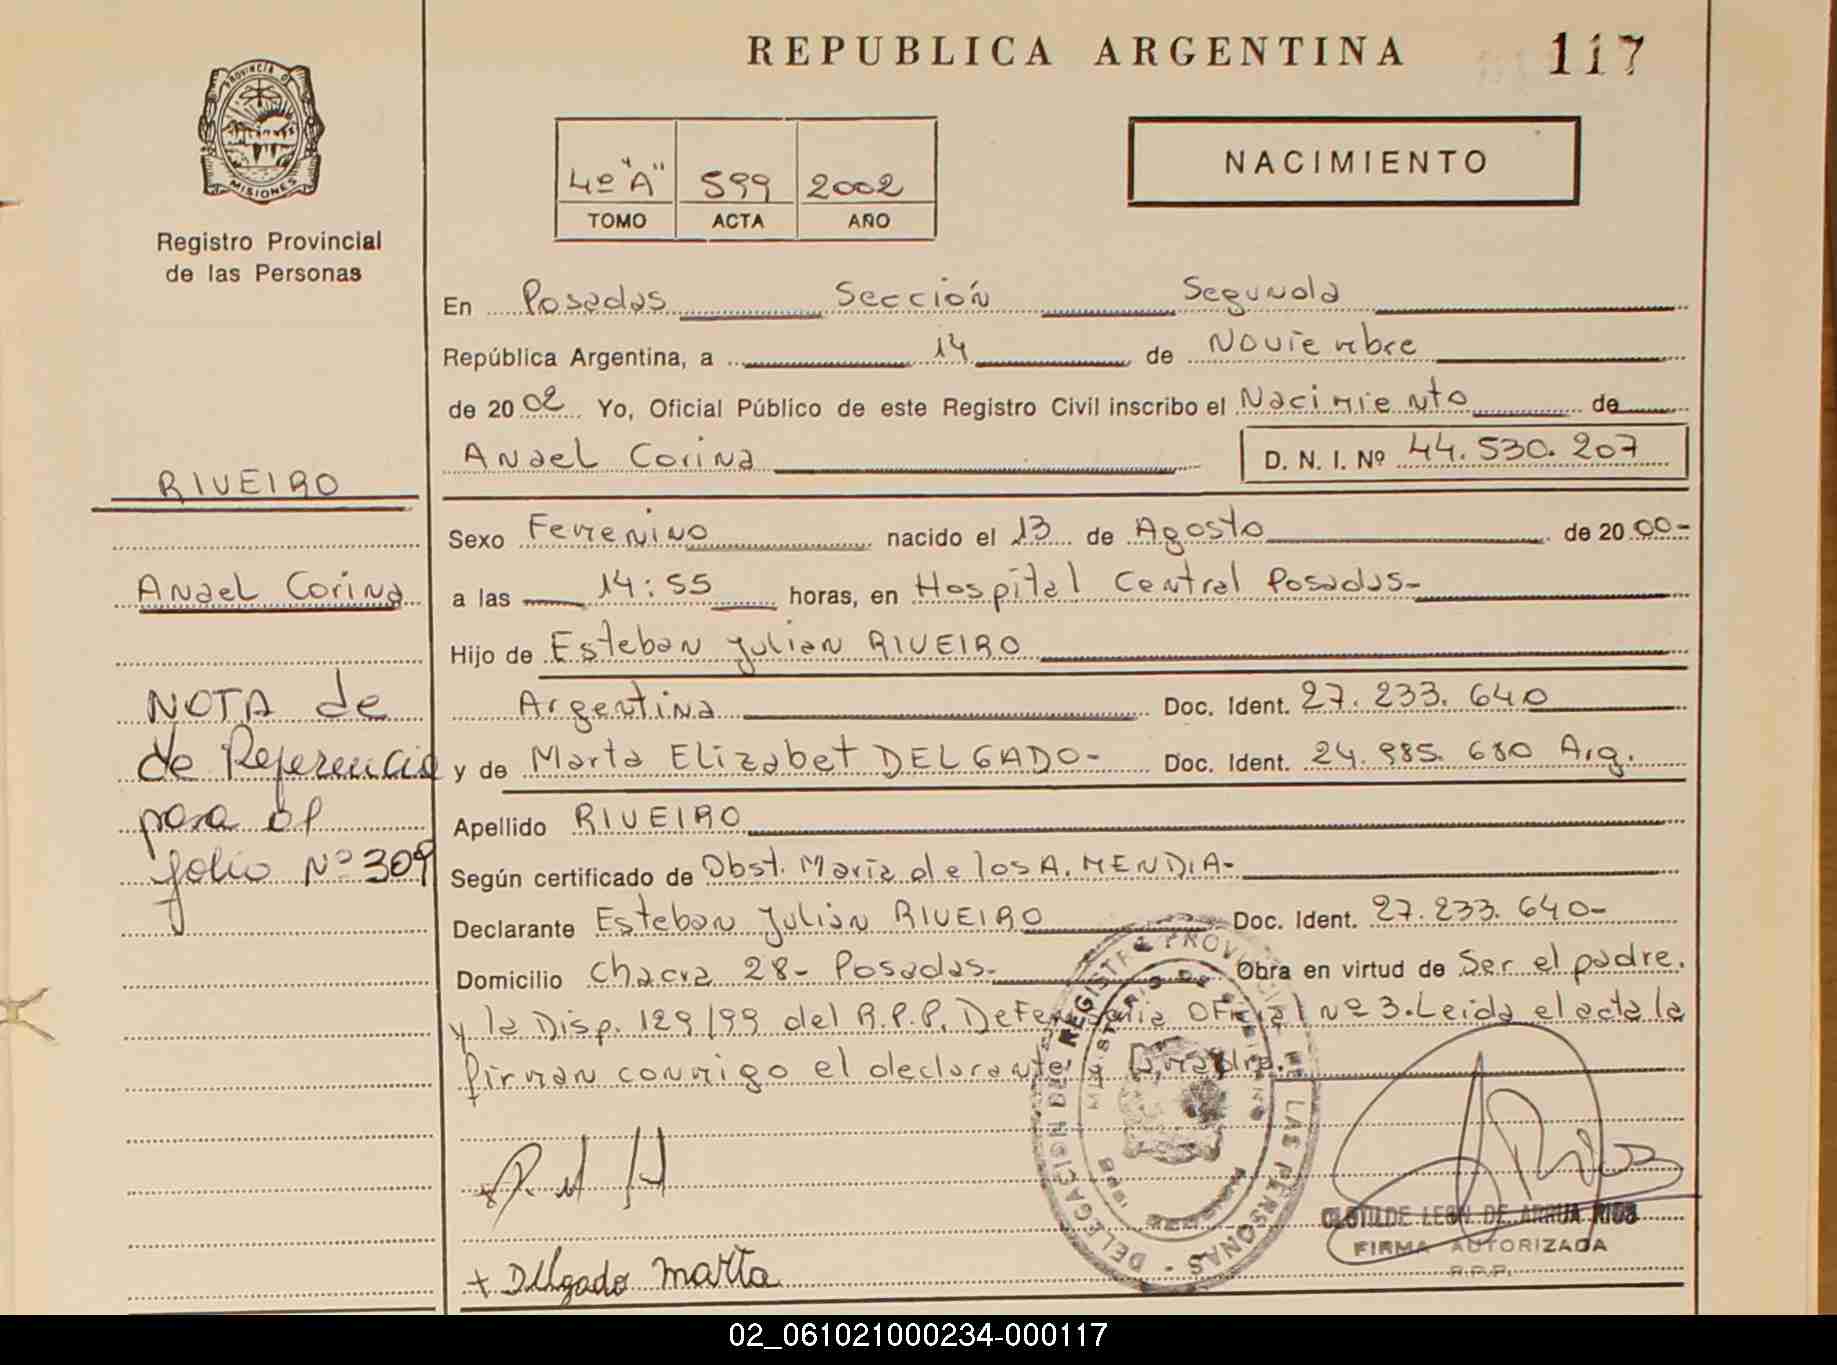 REPUBLICA ARGENTINA
117
PROVINCIA DE MISIONES
Registro Provincial
de las Personas
4º "A" 599 2002
TOMO ACTA AÑO
NACIMIENTO
En Posadas Sección Segunda
República Argentina, a 14 de Noviembre
de 2002 Yo, Oficial Público de este Registro Civil inscribo el Nacimiento de
Anael Corina D. N. I. Nº 44.530.207
RIVEIRO
Anael Corina
NOTA de
de Referencia
para el
folio Nº 309
Sexo Femenino nacido el 13 de Agosto de 2000-
a las 14:55 horas, en Hospital Central Posadas-
Hijo de Esteban Julian RIVEIRO
Argentina Doc. Ident. 27.233.640
y de Marta Elizabet DELGADO- Doc. Ident. 24.985.680 Arg.
Apellido RIVEIRO
Según certificado de Obst. María de los A. MENDIA-
Declarante Esteban Julián RIVEIRO Doc. Ident. 27.233.640-
Domicilio Chacra 28- Posadas- Obra en virtud de Ser el padre.
y la Disp. 129/99 del R.P.P. Defensoría Oficial Nº 3. Leida el acta la
firman conmigo el declarante y madre.
DELEGACION DEL REGISTRO PROVINCIAL DE LAS PERSONAS
MINISTERIO DE GOBIERNO
+ Delgado Marta
CLOTILDE LEON DE ARRUA RIOS
FIRMA AUTORIZADA
R.P.P.
02_061021000234-000117